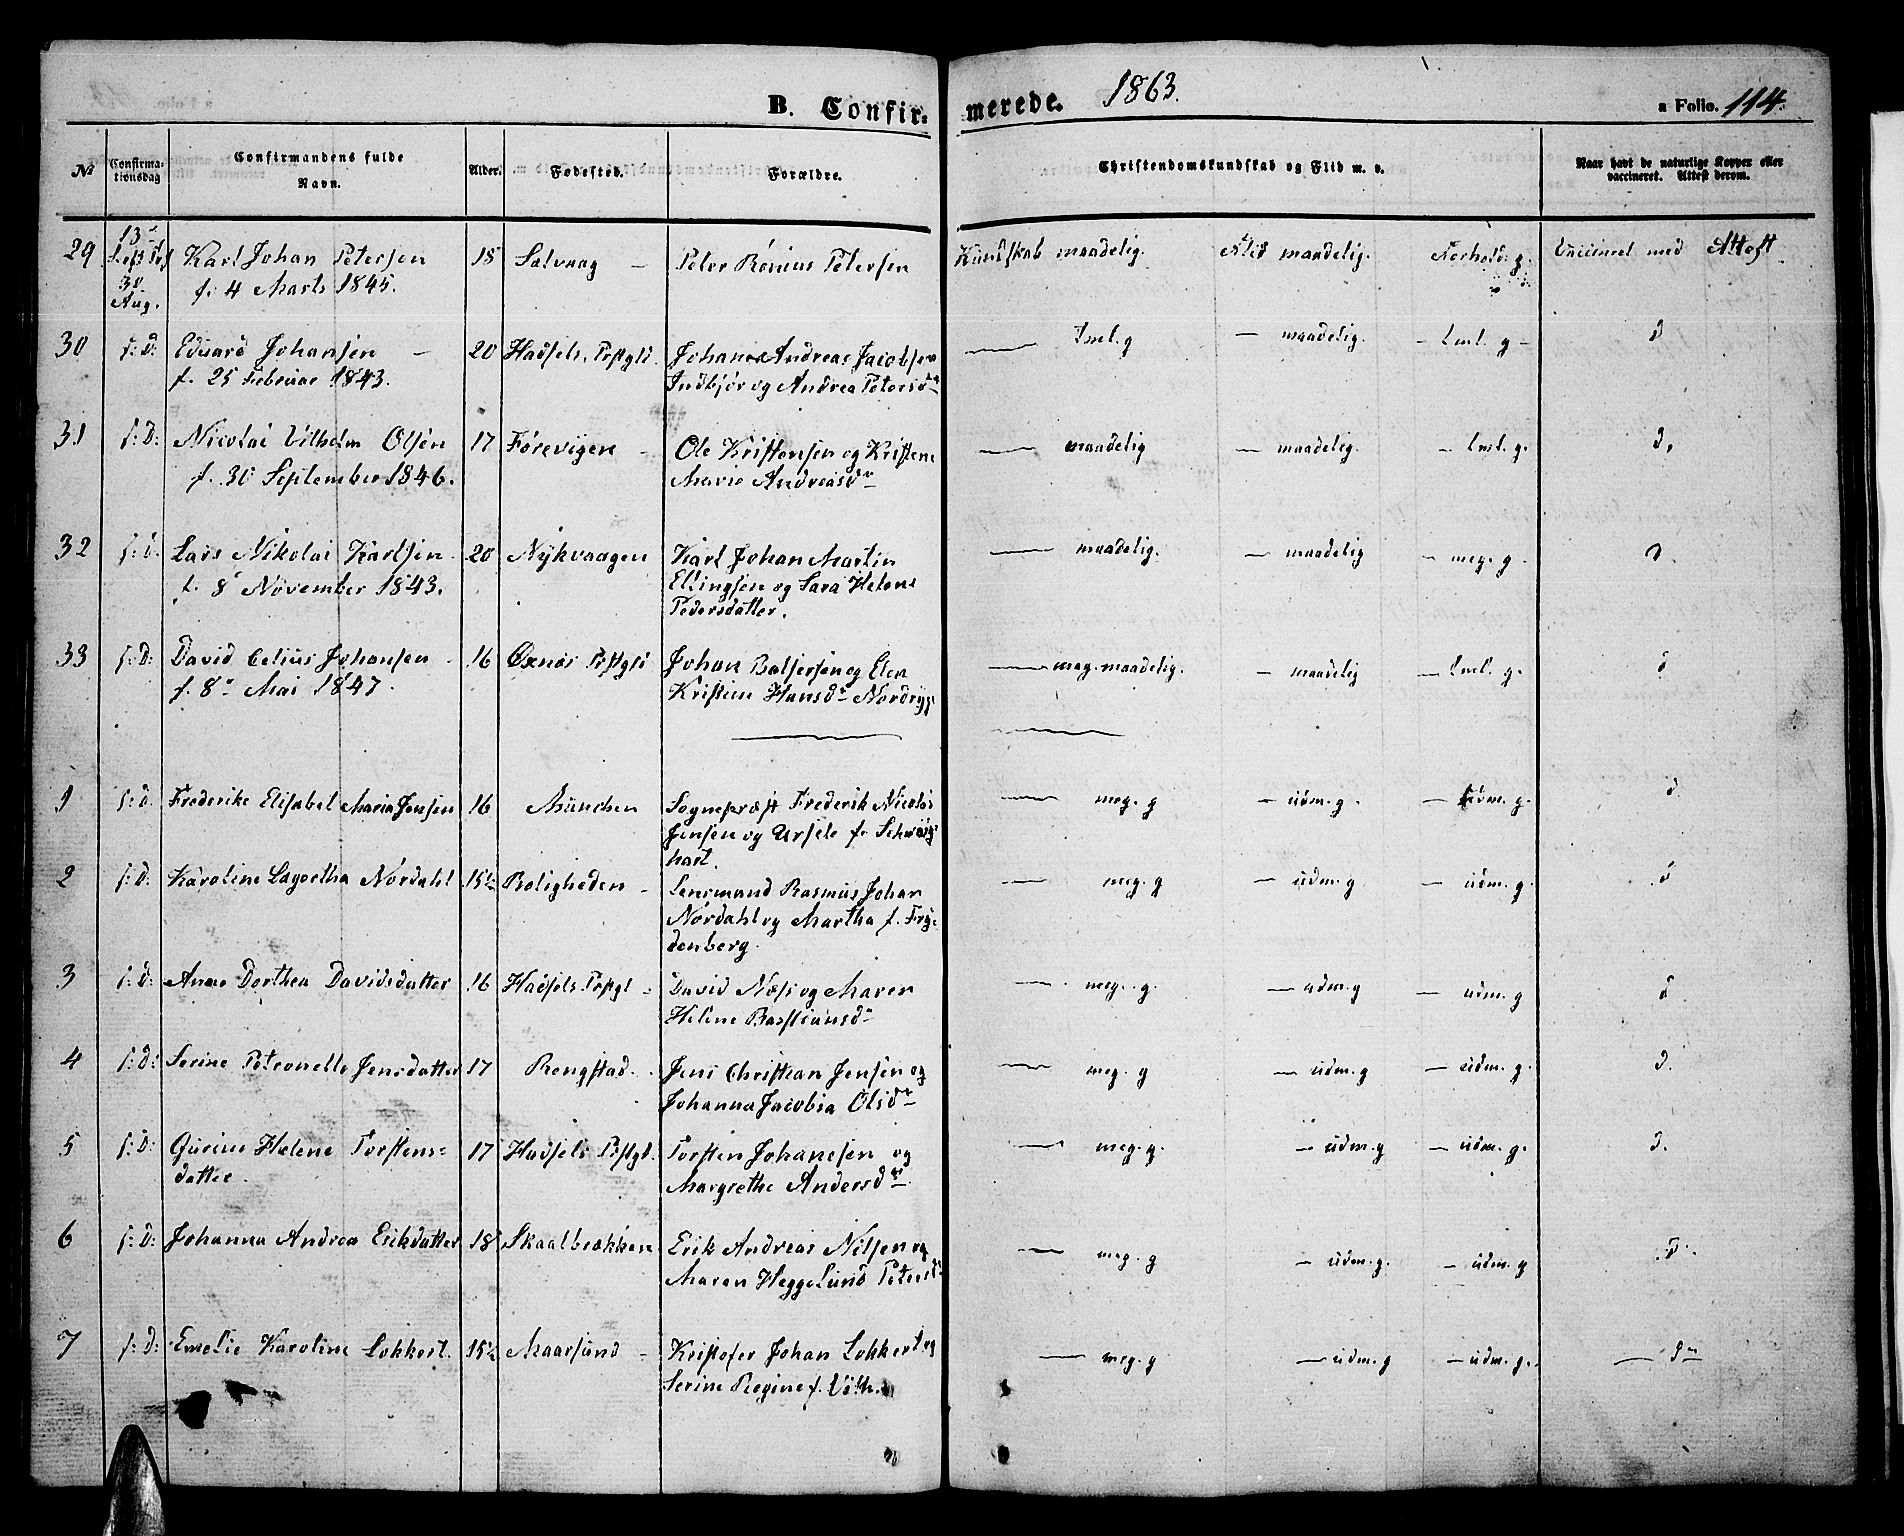 B. Confirmerede. 1863. a Folio. 114.
№ Confirmationsdag Confirmandens fulde Navn. Alder. Fødested. Forældre. Christendomskundskab og Flid m. v. Naar havt de naturlige Kopper eller vaccineret. Attest derom.
29 13 Karl Johan Petersen 18 Salvaag – Peter Rønius Petersen Kundskab maadelig. Flid maadelig. Forhold: g. Vaccineret med Attest
30 Aug. f: 4 Marts 1845.
30 f: D: Eduard Johansen – 20 Hadsels, Prstgld. Johan Andreas Jacobsen – Tml. g – maadelig. – tml. g – d
f. 25 Februar 1843. Indbjør og Andrea Petersd
31 f: D: Nicolai Vilhelm Olsen 17 Førevigen – Ole Kristensen og Kristene – maadelig – maadelig. – tml. g. d.
f. 30 September 1846. Marie Andreasdr
32 f: d. Lars Nikolai Karlsen 20 Nykvaagen Karl Johan Martin – maadelig. – maadelig – meg. g. d.
f. 8 November 1843. Ellingsen og Sara Helene
Pedersdatter.
33 f: D: David Celius Johansen. 16 Øxnæs Prstgld Johan Baltsersen og Elen – meg. maadelig. – maadelig – tml. g. d
f. 8de Mai 1847. Kristine Hansdr Nordryg
1 f: d. Frederike Elisabet Maria Jensen 16 München Sognepræst Frederik Nicolai – meg. g – udm. g. – udm. g. d.
Jensen og Ursele f. Schweig=
hart.
2 f: D: Karoline Lagoetha Nordahl 15½ Roligheden – Lensmand Rasmus Johan – meg. g – udm. g – udm. g. d
Nordahl og Martha f. Fry=
denberg.
3 f: D: Anne Dorthea Davidsdatter 16 Hadsels Prstgl – David Næss og Maren – meg. g. – udm. g – udm. g d
Helene Bastiansdr
4 f: D: Serine Petronelle Jensdatter 17 Rengstad. Jens Christian Jensen og – meg. g – udm. g – udm. g. d.
Johanna Jacobia Olsdr
5 f: D: Gurine Helene Torstens= 17 Hadsels Prstgl. Torsten Johanesen og – meg. g. – udm. g – udm. g. d.
datter. Margrethe Andersdr
6 f: D: Johanna Andrea Erikdatter 18 Skaalbrækken Erik Andreas Nilsen og – meg. g – udm. g. – udm. g D.
Maren Heggelund Petersd
7 f: D: Emelie Karoline Lokkert. 15½ Maarsund – Kristofer Johan Lokkert og – meg. g – udm. g – udm. g. – d –
Serine Regine f. Voth.